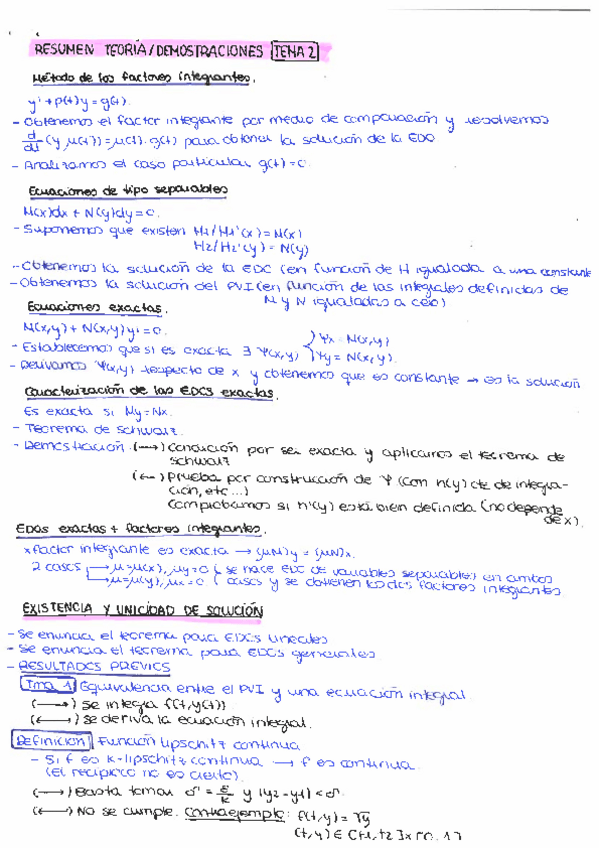 RESUMEN TEORÍA/DEMOSTRACIONES TEMA 2
Método de los factores integrantes.
y' + p(t)y = g(t).
- Obtenemos el factor integrante por medio de comparación y resolvemos
d/dt (y μ(t)) = μ(t).g(t) para obtener la solución de la EDO
- Analizamos el caso particular g(t)=0.
Ecuaciones de tipo separables
M(x)dx + N(y)dy = 0.
- Suponemos que existen H1/H1'(x) = M(x)
H2/H2'(y) = N(y)
- Obtenemos la solución de la EDO (en función de H igualada a una constante
- Obtenemos la solución del PVI (en función de las integrales definidas de
M y N igualadas a cero)
Ecuaciones exactas.
M(x,y) + N(x,y)y' = 0.
- Establecemos que si es exacta ∃ Ψ(x,y) } Ψx = M(x,y)
Ψy = N(x,y).
- Derivamos Ψ(x,y) respecto de x y obtenemos que es constante → es la solución
Caracterización de las EDOS exactas.
Es exacta si My = Nx.
- Teorema de Schwarz.
- Demostración. (→) Condición por ser exacta y aplicamos el teorema de
Schwarz
(←) Prueba por construcción de Ψ (con h(y) cte de integra-
ción, etc...)
Comprobamos si h'(y) está bien definida (no depende
de x).
EDOs exactas + factores integrantes.
x factor integrante es exacta → (μM)y = (μN)x.
2 casos → μ=μ(x), μy=0 ( se hace EDO de variables separables) en ambos
→ μ=μ(y), μx=0 ( casos y se obtienen los dos factores integrantes
EXISTENCIA Y UNICIDAD DE SOLUCIÓN
- Se enuncia el teorema para EDOS lineales
- Se enuncia el teorema para EDOS generales
- RESULTADOS PREVIOS
Tma 1 Equivalencia entre el PVI y una ecuación integral
(→) Se integra f(t,y(t))
(←) Se deriva la ecuación integral.
Definición Función Lipschitz continua
- Si f es k-Lipschitz continua → f es continua.
(El recíproco no es cierto).
(→) Basta tomar δ = ε/k y |y2-y1| < δ.
(←) No se cumple. Contraejemplo: f(t,y) = √y
(t,y) ∈ [t1,t2]x[0,1]